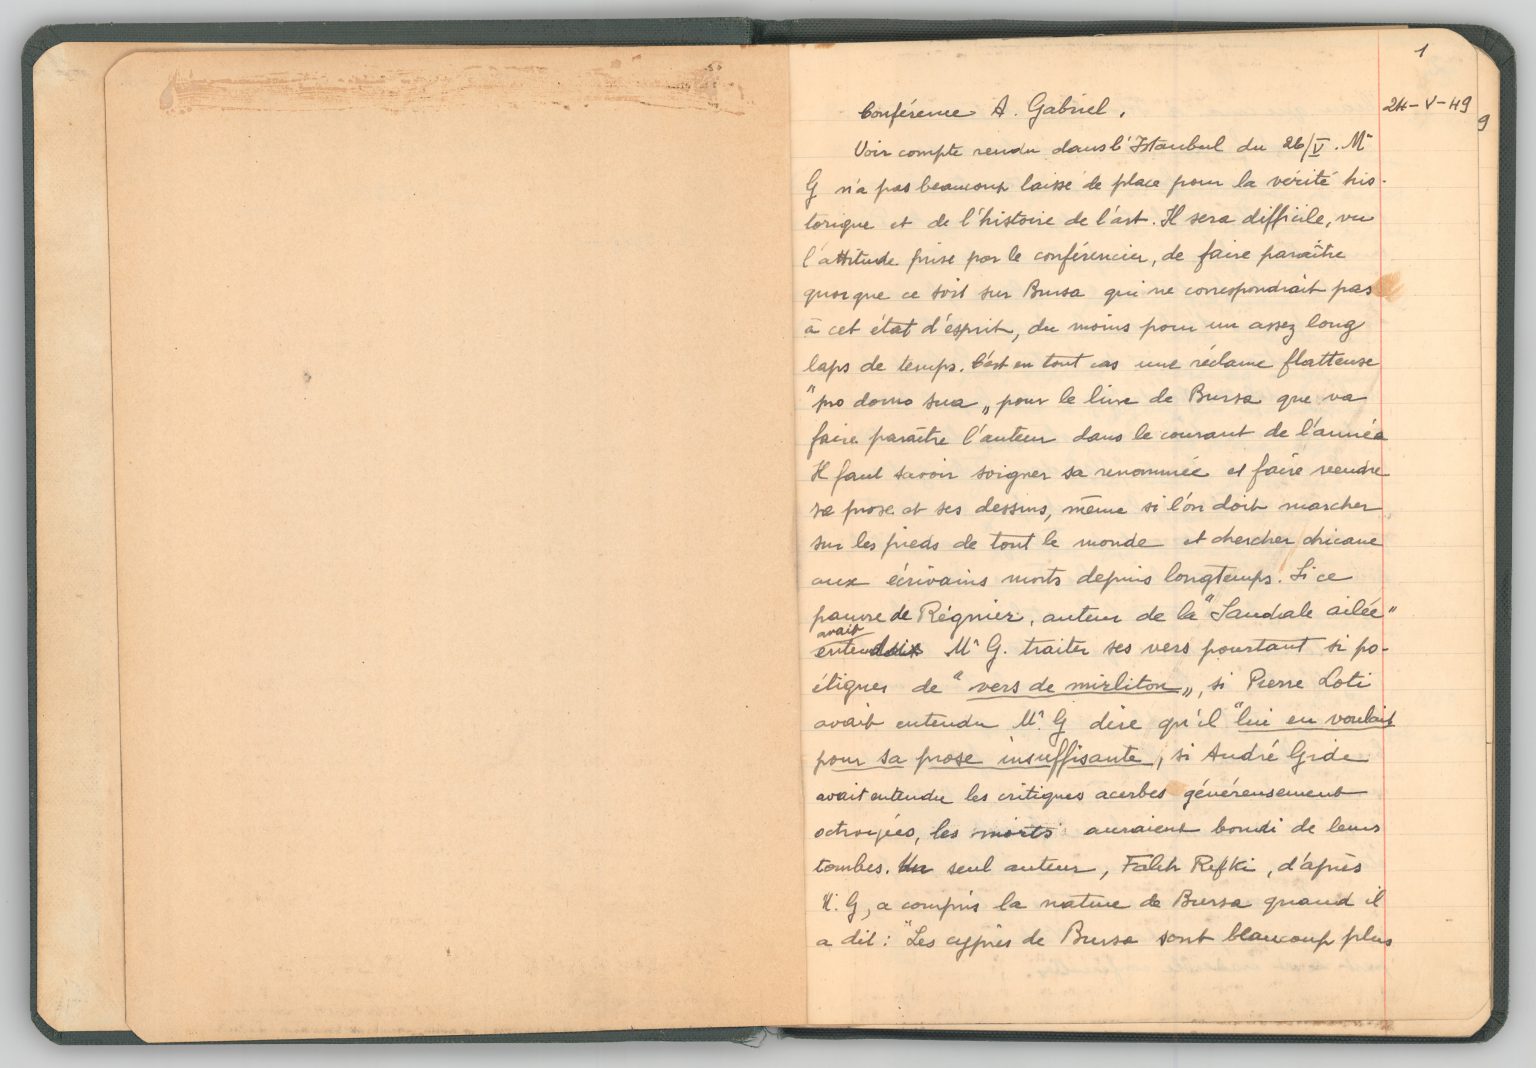 1
Conférence A. Gabriel. 24-V-49
Voir compte rendu dans l'Istanbul du 26/V. Mr
G n'a pas beaucoup laissé de place pour la vérité his-
torique et de l'histoire de l'art. Il sera difficile, vu
l'attitude prise par le conférencier, de faire paraître
quoique ce soit sur Bursa qui ne correspondrait pas
à cet état d'ésprit, du moins pour un assez long
laps de temps. C'est en tout cas une réclame flatteuse
"pro domo sua" pour le livre de Bursa que va
faire paraître l'auteur dans le courant de l'année
Il faut savoir soigner sa renommée et faire vendre
sa prose et ses dessins, même si l'on doit marcher
sur les pieds de tout le monde et chercher chicane
aux écrivains morts depuis longtemps. Si ce
pauvre de Régnier, auteur de la "Sandale ailée"
avait
entendu Mr G. traiter ses vers pourtant si po-
étiques de "vers de mirliton", si Pierre Loti
avait entendu Mr. G dire qu'il "lui en voulait
pour sa prose insuffisante, si André Gide
avait entendu les critiques acerbes généreusement
octroyées, les morts auraient bondi de leurs
tombes. Un seul auteur, Falih Rifki, d'après
M. G, a compris la nature de Bursa quand il
a dit: "Les cyprès de Bursa sont beaucoup plus
9